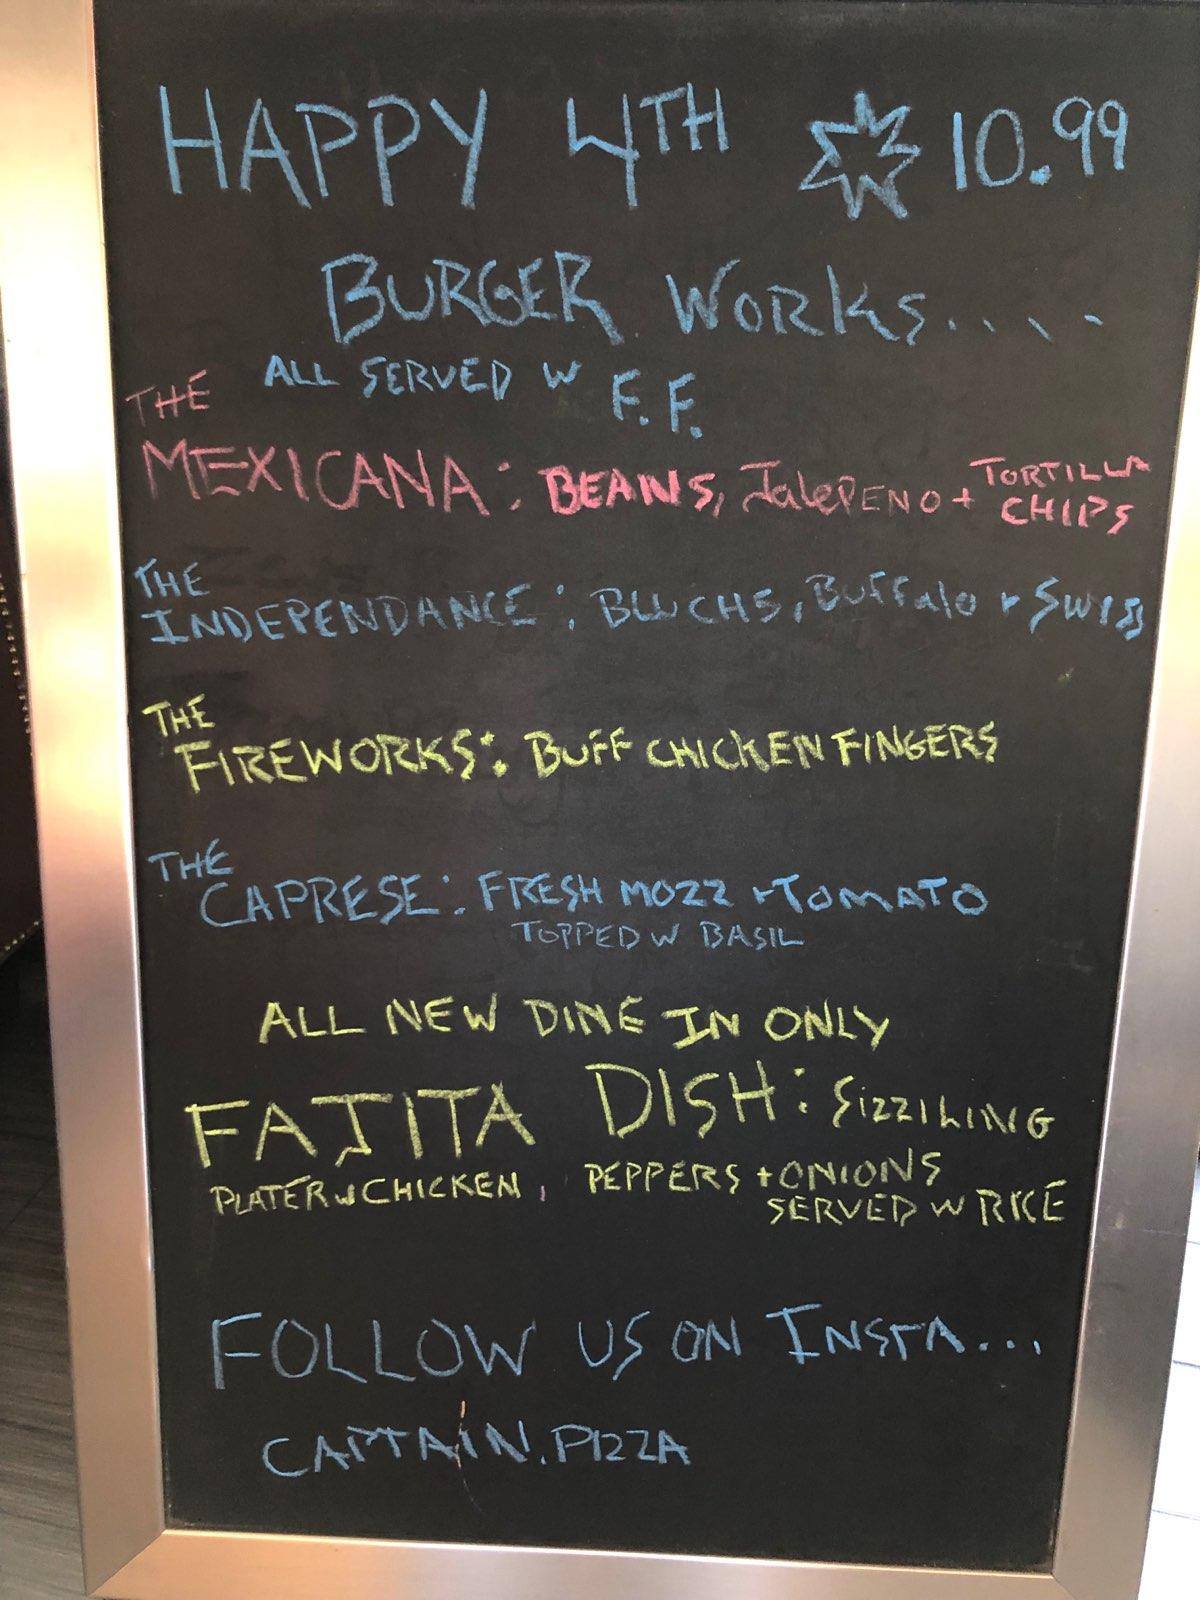 HAPPY 4TH 10.99
BURGER WORKS....
ALL SERVED W F.F.
THE
MEXICANA: BEANS, JalePENO + TORTILLA CHIPS
THE
INDEPENDANCE: BLUCHS, BUFFalo + SWISS
THE
FIREWORKS: BUFF CHICKEN FINGERS
THE
CAPRESE: FRESH MOZZ + TOMATO
TOPPED W BASIL
ALL NEW DINE IN ONLY
FAJITA DISH: SIZZILING
PLATER W CHICKEN, PEPPERS + ONIONS
SERVED W RICE
FOLLOW US ON INSTA...
CAPTAIN.PIZZA